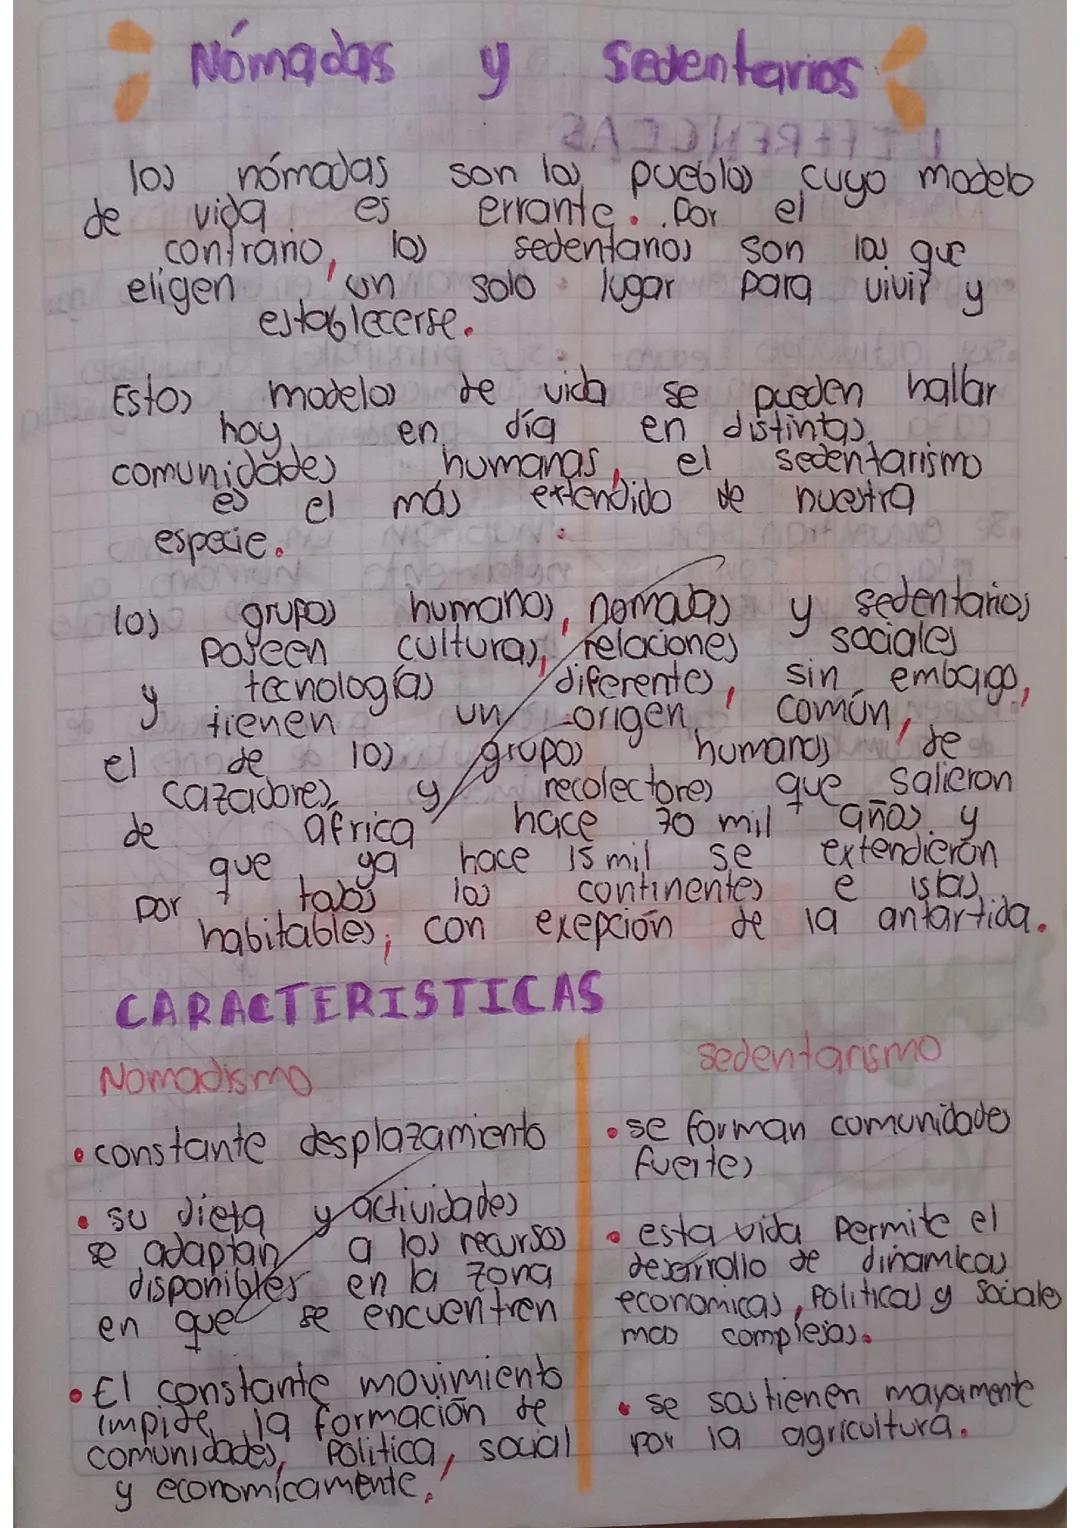 Nómadas y Sedentarios
los nómadas son los pueblos cuyo modelo
de vida es errante. Por el
contrario, los sedentarios son los que
eligen un solo lugar para vivir y
establecerse.
Estos modelos de vida se pueden hallar
hoy en día en distintas
comunidades humanas, el sedentarismo
es el más extendido de nuestra
especie.
los grupos humanos, nomadas y sedentarios
poseen culturas, relaciones sociales
y tecnologías diferentes, sin embago,
tienen un origen común,
el de los grupos humanos de
cazadores y recolectores que salieron
de áfrica hace 70 mil años y
que ya hace 15 mil se extendieron
por todos los continentes e islas
habitables, con exepción de la antártida.
CARACTERISTICAS
Nomadismo
• constante desplazamiento
• su dieta y actividades
se adaptan a los recursos
disponibles en la zona
en que se encuentren
• El constante movimiento
impide la formación de
comunidades, politica, social
y economícamente.
sedentarismo
• se forman comunidades
fuertes
• esta vida permite el
desarrollo de dinamicas
economicas, politicas y sociales
mas complejas.
• se sostienen mayormente
por la agricultura.